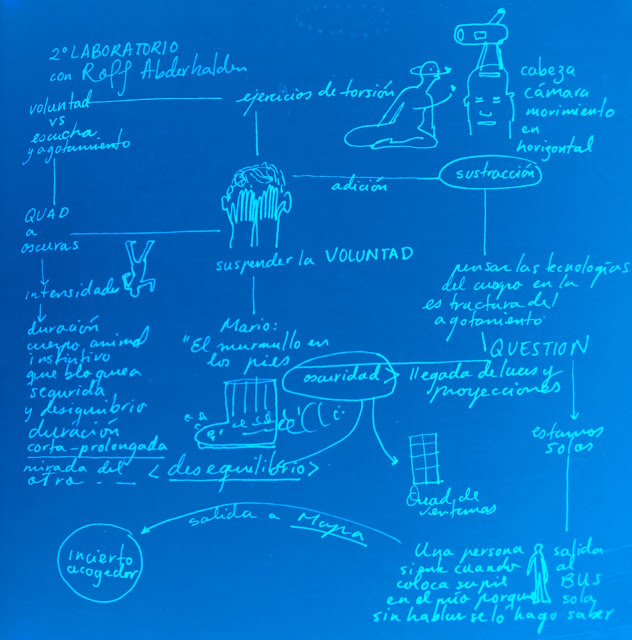 2º LABORATORIO
con Rolf Abderhalden
voluntad
vs
escucha
y agotamiento
ejercicios de torsión
cabeza
cámara
movimiento
en
horizontal
adición
sustracción
QUAD
a
oscuras
suspender la VOLUNTAD
intensidades
duración
cuerpo animal
instintivo
que bloquea
seguridad
y desiquibrio
duración
corta-prolongada
mirada del
otro
Mario:
"El murmullo en
los pies
pensar las tecnologías
del cuerpo en la
estructura del
agotamiento
QUESTION
oscuridad > llegada de luces y
proyecciones
<desequilibrio>
Quad de
ventanas
estamos
solos
salida a Mapa
incierto
acogedor
Una persona
sigue cuando
coloca su pie
en el mío porque
sin hablar se lo hago saber
salida
al
BUS
sola